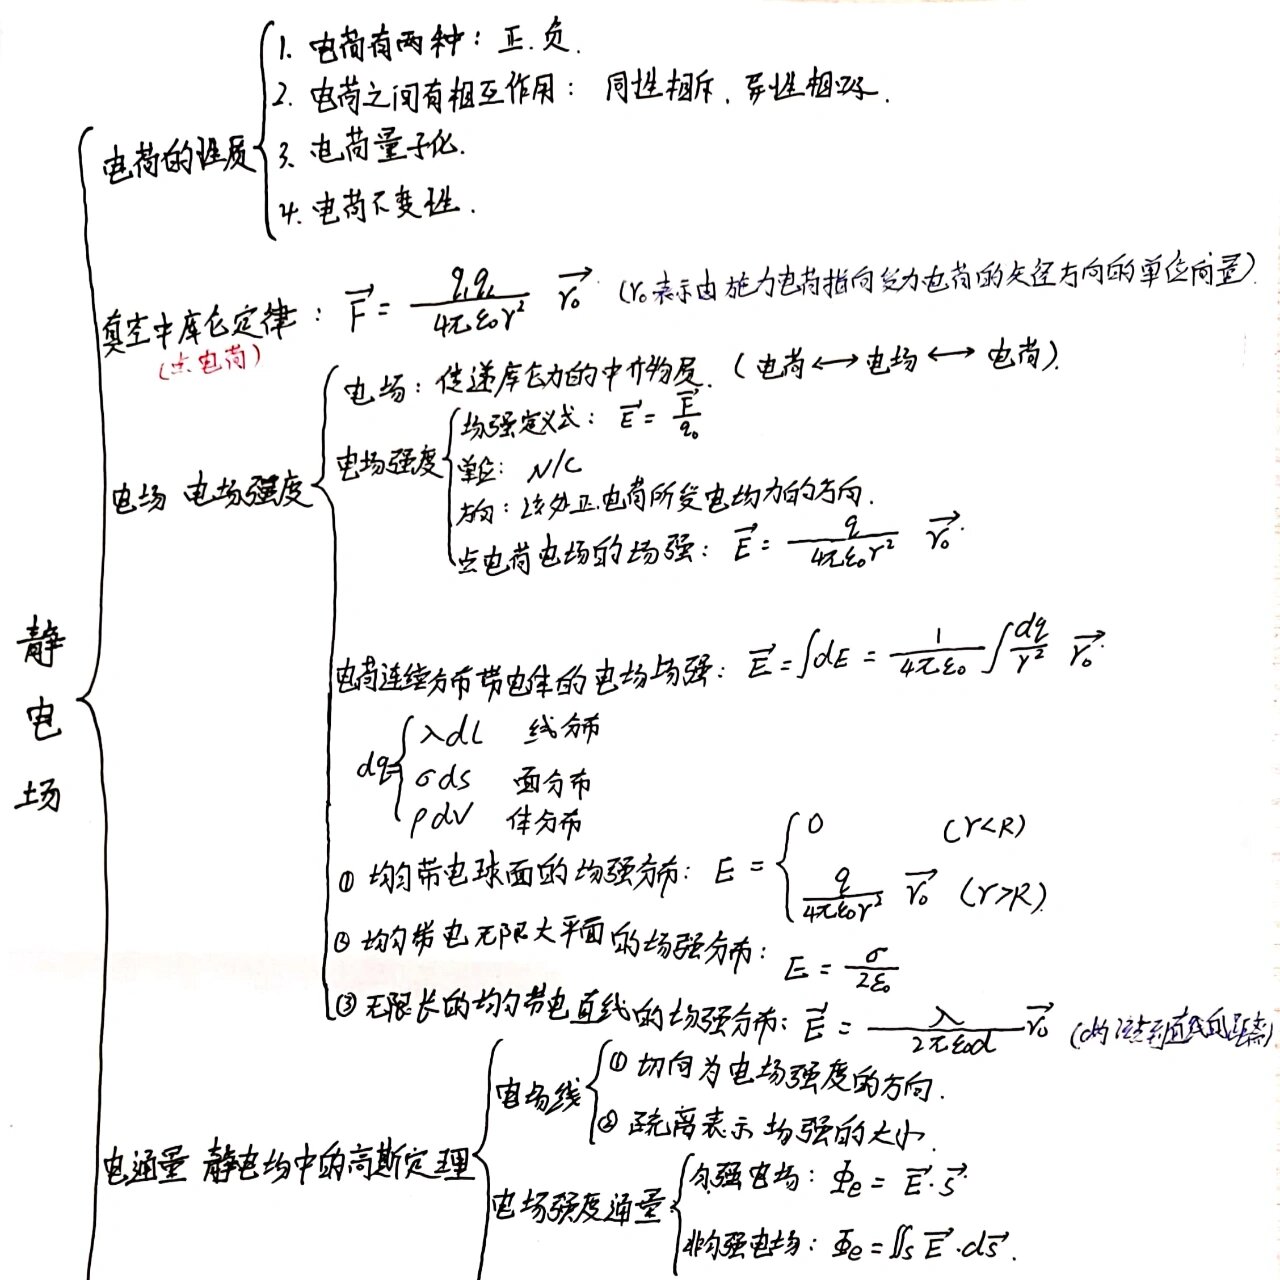 静电场
电荷的性质
1. 电荷有两种：正.负.
2. 电荷之间有相互作用： 同性相斥. 异性相吸.
3. 电荷量子化.
4. 电荷不变性.
真空中库仑定律： F⃗ = q₁q₂/4πε₀r² r₀⃗ (r₀表示由施力电荷指向受力电荷的矢径方向的单位向量)
(点电荷)
电场 电场强度
电场：传递库仑力的中介物质. (电荷⟷电场⟷电荷).
电场强度
场强定义式： E⃗ = F⃗/q₀
单位： N/C
方向：该处正电荷所受电场力的方向.
点电荷电场的场强： E⃗ = q/4πε₀r² r₀⃗
电荷连续分布带电体的电场场强： E⃗ = ∫dE = 1/4πε₀ ∫dq/r² r₀⃗
dq=
λdl 线分布
σds 面分布
ρdV 体分布
① 均匀带电球面的场强分布： E = { 0 (r<R)
q/4πε₀r² r₀⃗ (r>R).
② 均匀带电无限大平面的场强分布： E = σ/2ε₀
③ 无限长的均匀带电直线的场强分布： E⃗ = λ/2πε₀d r₀⃗ (d为该点到直线的距离)
电通量 静电场中的高斯定理
电场线
① 切向为电场强度的方向.
② 疏密表示场强的大小.
电场强度通量
匀强电场： Φe = E⃗·s⃗
非匀强电场： Φe = ∬s E⃗·ds⃗.